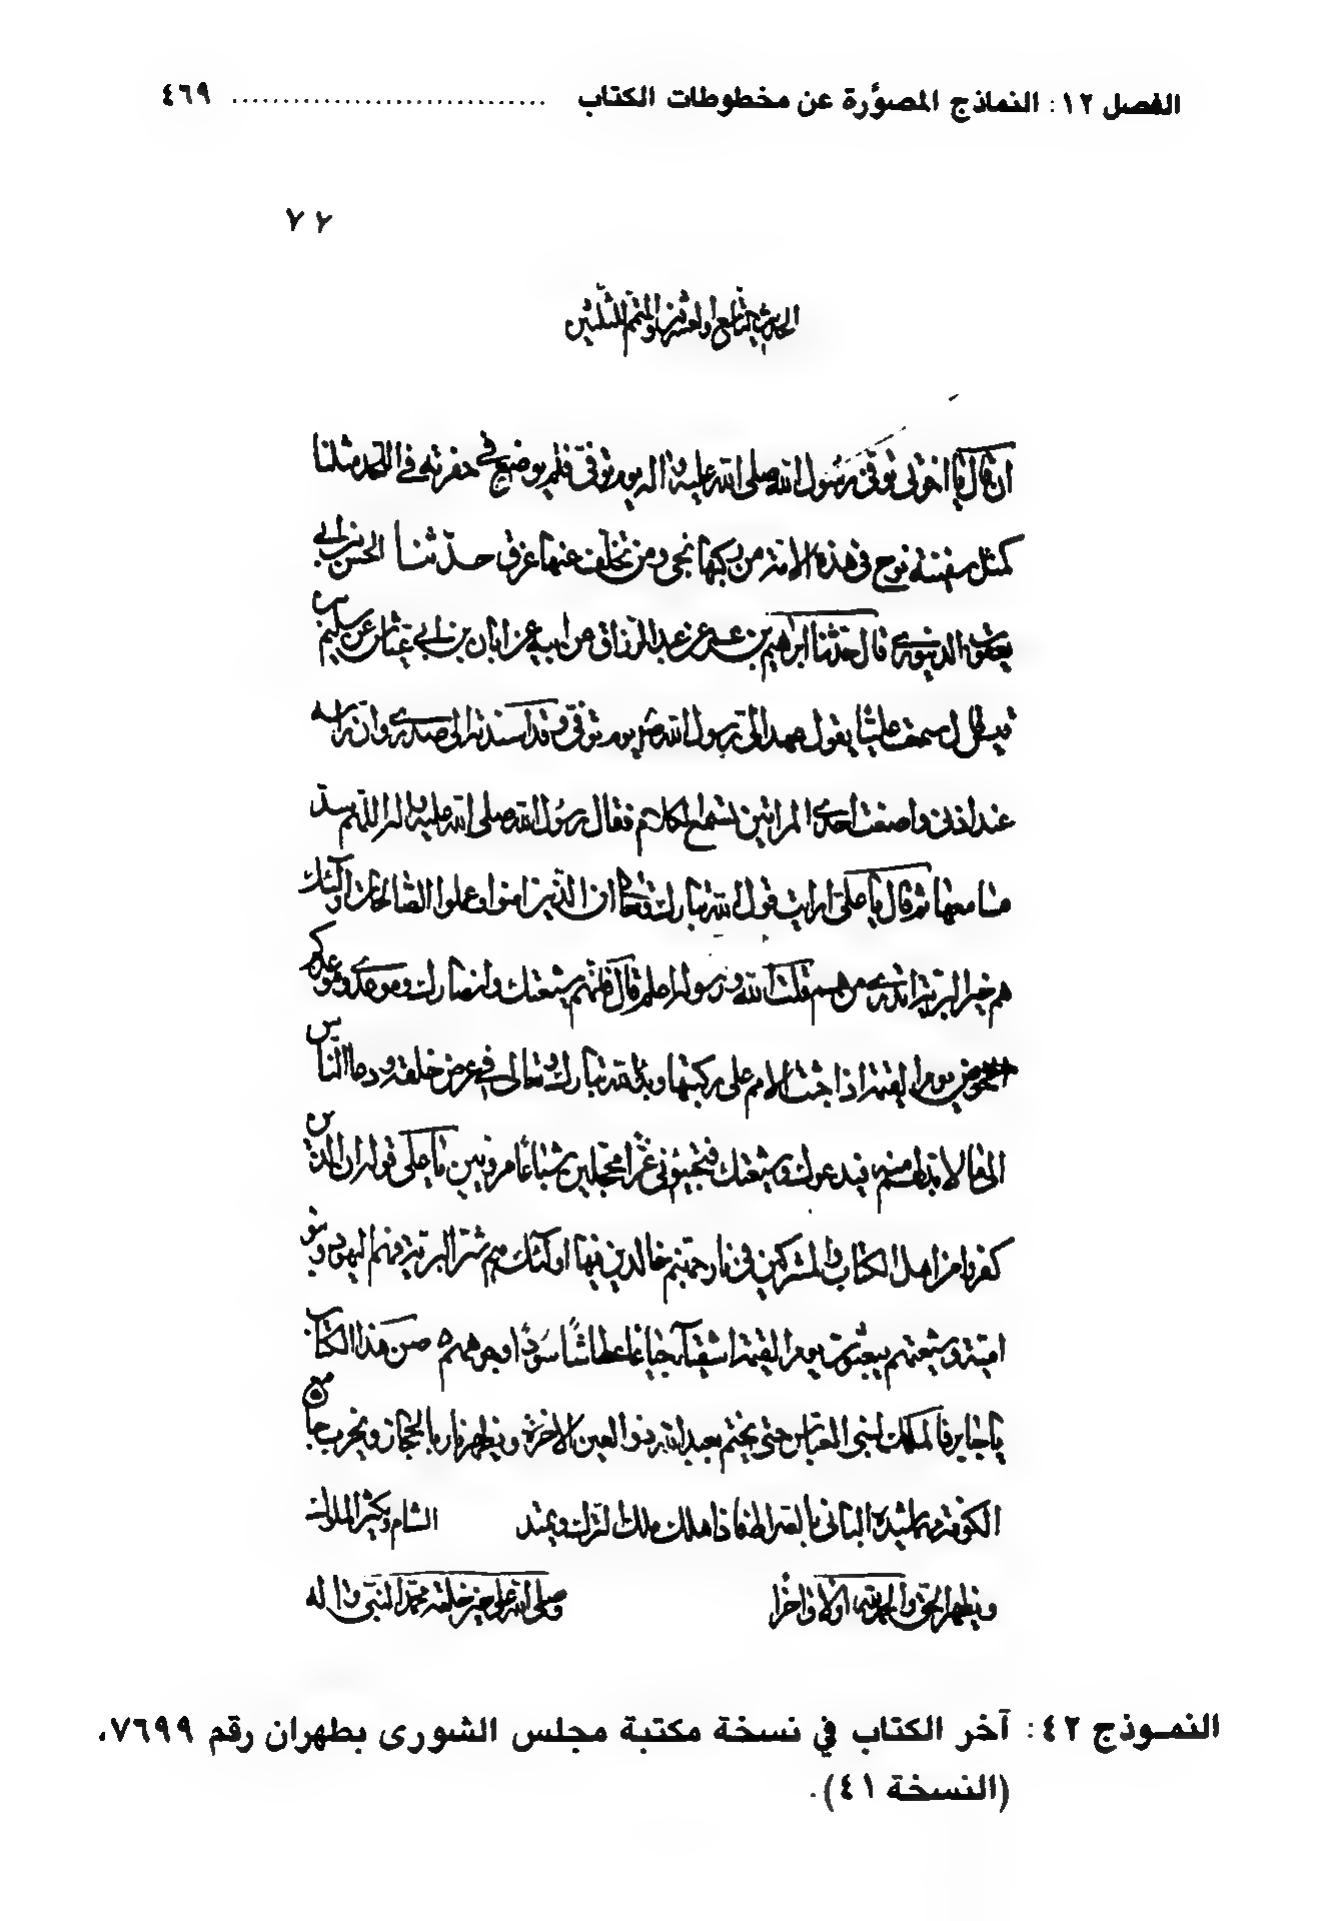 الفصل ١٢: النماذج المصوَّرة عن مخطوطات الكتاب ............................... ٤٦٩
٧٢
الحديث التاسع والعشرون والمتمم للثلثين
ان قال يا اخوتي توفى رسول الله صلى الله عليه واله يوم توفى فلم يوضع في حفرته في مثلنا
كمثل سفينة نوح فى هذه الامة من ركبها نجى ومن تخلف عنها غرق حدثنا الحسن بن ابي
يعقوب الدينوري قال حدثنا ابرهيم بن عمر عن عبد الرزاق عن ابيه عن ابان بن ابي عياش عن سليم بن
قيس قال سمعت عليا يقول عهد الى رسول الله ص يوم توفى وقد اسندته الى صدري وان راسه
عند اذنى واصغت احدى المراتين لتسمع الكلام فقال رسول الله صلى الله عليه واله اللهم سد
مسامعها ثم قال يا على ارايت قول الله تبارك وتعالى ان الذين امنوا وعملوا الصالحات اولئك
هم خير البرية اتدري من هم قلت الله ورسوله اعلم قال فانهم شيعتك وانصارك وموعدي وموعدكم
الحوض يوم القيمة اذا جثت الامم على ركبها وبدا لله تبارك وتعالى في عرض خلقه ودعا الناس
الى ما لا بد لهم منه فيدعوك وشيعتك فتجيئونى غرا محجلين شباعا مرويين يا على قوله ان الذين
كفروا من اهل الكتاب والمشركين فى نار جهنم خالدين فيها اولئك هم شر البرية فهم اليهود وبنو
امية وشيعتهم يبعثون يوم القيمة اشقياء جياعا عطاشا سودا وجوههم من هذا الكتاب
يا جابر فالملك لبنى العباس حتى يختم بعبد الله ذو العين الاخرة وتظهر نار بالحجاز ويخرب جامع
الكوفة الثانى فاذا هلك ملك الترك ويمتد الشام ويكثر الملوك
ويظهر الحق والحمد لله اولا واخرا وصلى الله على خير خلقه محمد النبي واله
النمـوذج ٤٢: آخر الكتاب في نسخة مكتبة مجلس الشورى بطهران رقم ٧٦٩٩،
(النسخة ٤١).